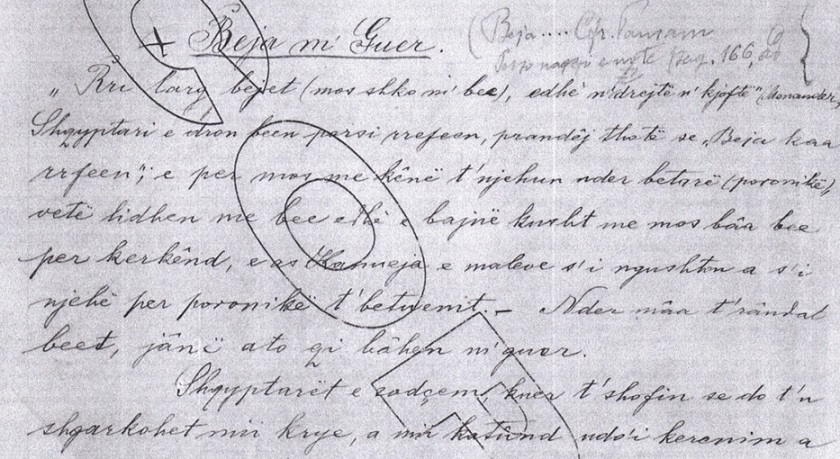 + Beja m' Guer. (Beja .... Cfr.
166,
„Rri larg bejet (mos shko m' bee), edhè n'drejtë n' kjoftë" (Menander)
Shqyptari e dron been porsi rrfeen, prandêj thotë se „Beja kaa
rrfeen"; e per mos me kênë t'njehun nder betarë (poronikë),
vetë lidhen me bee edhè e bajnë kusht me mos bâa bee
per kerkênd, e as Kanueja e maleve s'i ngushton a s'i
njehë per poronikë t'betuemit. – Nder mâa t'rândat
beet, jânë ato qi bâhen m'guer.
Shqyptarët e sodçem, kuer t'shofin se do t'u
shgarkohet mii krye, a mii katund ndo'i kerenim a